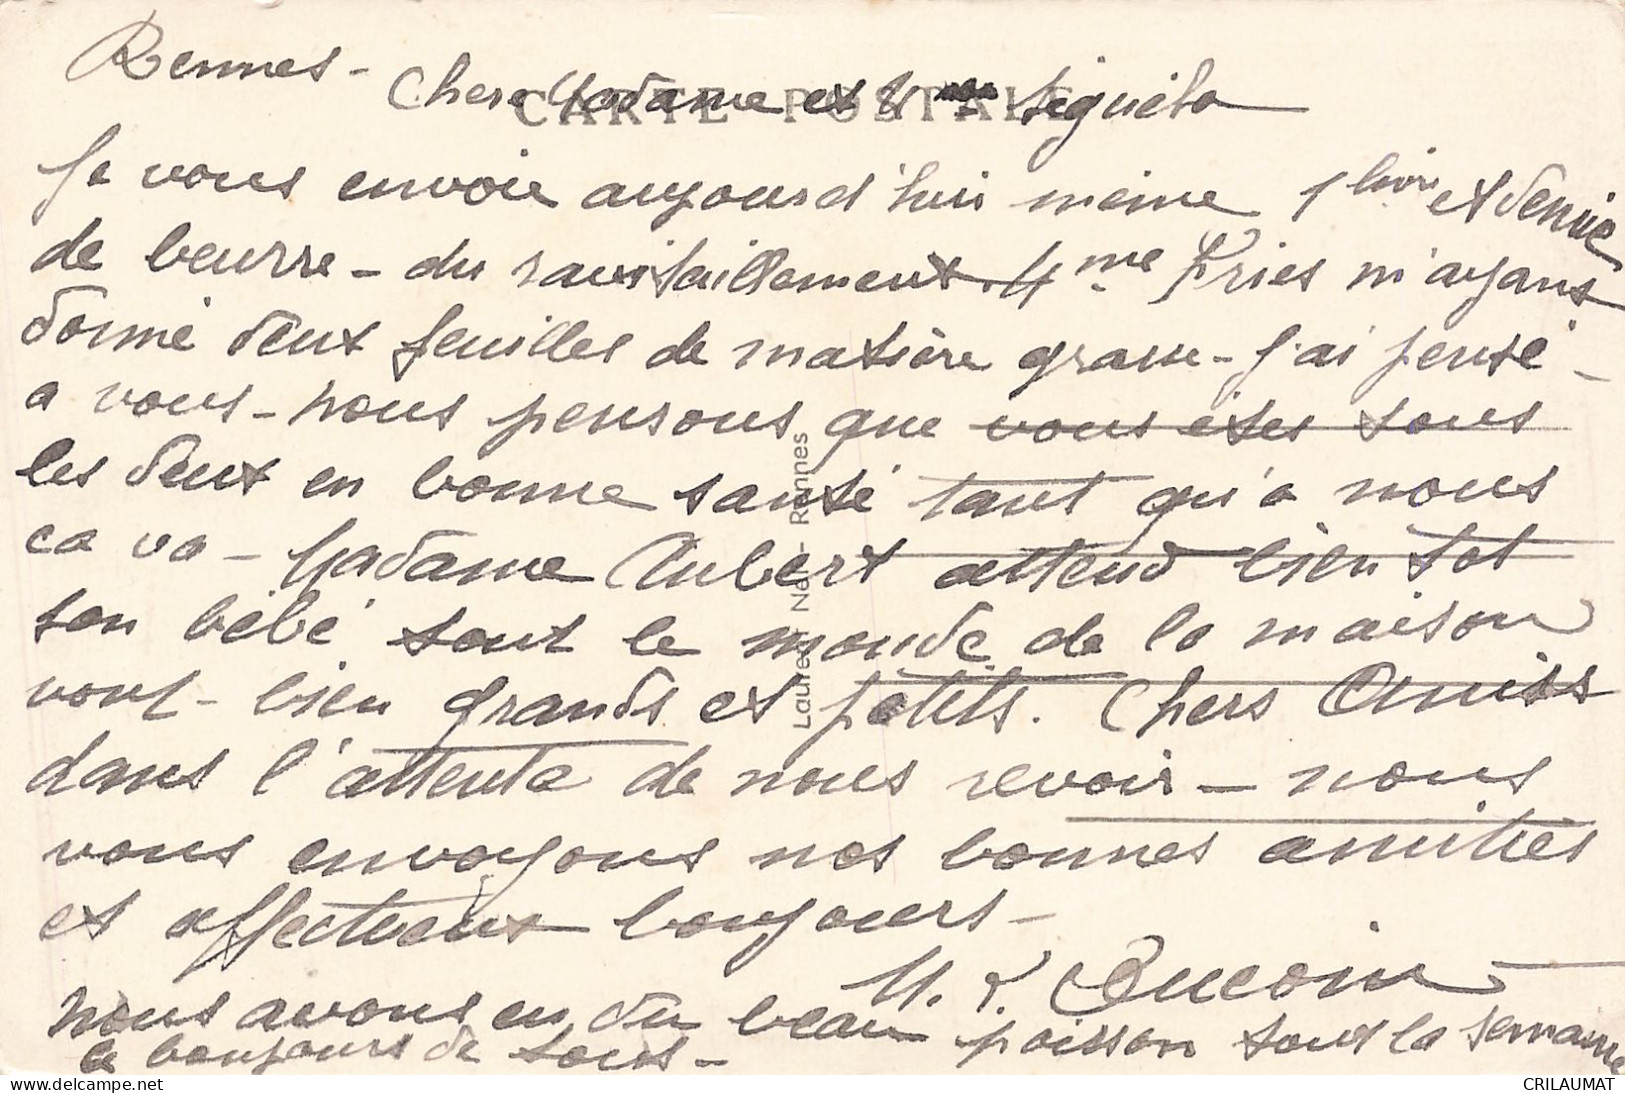 Rennes -
Chere Madame et
CARTE POSTALE
Je vous envoie aujourd'hui même 1 livre et demie
de beurre - du ravitaillement. Mme Kries m'ayant
donné deux feuilles de matière grasse - j'ai pensé -
a vous - nous pensons que vous êtes tous
les deux en bonne santé tant qu'a nous
ca va - Madame Aubert attend bientot
son bébé tout le monde de la maison
vont - bien grands et petits. Chers Amiss
dans l'attente de nous revoir - nous
vous envoyons nos bonnes amitiés
et affectueux bonjours -
nous avons eu du beau poisson tout la semaine
le bonjours de tous -
Laurent Nel - Rennes
CRILAUMAT